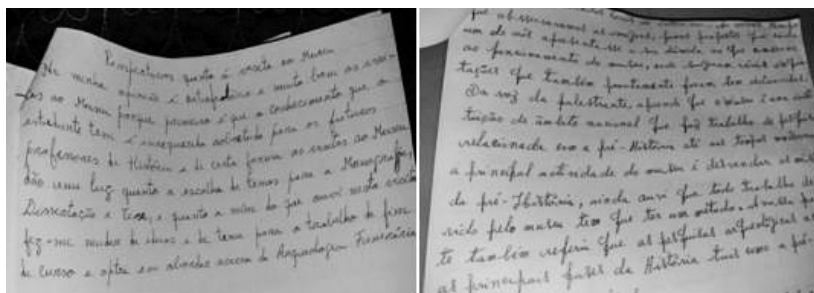 Perspectivas quanto á visita ao Museu
Na minha opinião é extrapolar e muito bom as visi-
tas ao Museu porque primeiro é que o conhecimento que o
estudante tem é enriquecido sobretudo para os futuros
professores de História e de certa forma as visitas ao Museu
dão uma luz quanto a escolha de temas para a Monografia,
Dissertação e Tese, e quanto a mim do que ouvi nesta visita
fez-me mudar de ideias e de tema para o trabalho de fim
de curso e optei em abordar acerca de Arqueologia Funerária
que
um de nós apresentasse a sua dúvida no que concerne
ao funcionamento do museu, onde surgiram várias
tações que também prontamente foram bem
Da voz da palestrante, aprendi que o museu é uma insti-
tuição de âmbito nacional que faz trabalho de pesquisa
relacionada com a pré-História até aos tempos modernos
a principal actividade do museu é desvendar
da pré-História, ainda ouvi que todo trabalho
rido pelo museu tem que ter um método. A nossa
te também referiu que as pesquisas arqueológicas
as principais fases da História tais como a pré-